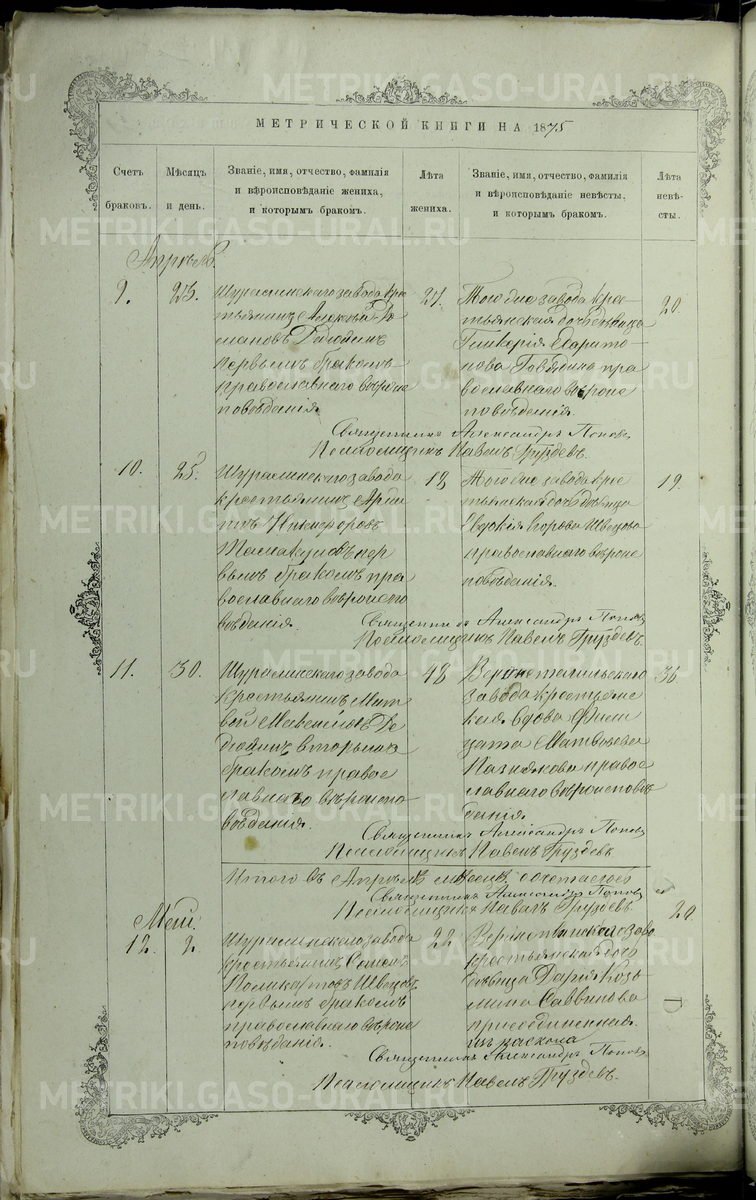 МЕТРИЧЕСКОЙ КНИГИ НА 1875
Счетъ
браковъ.
Мѣсяцъ
и день.
Званіе, имя, отчество, фамилія
и вѣроисповѣданіе жениха,
и которымъ бракомъ.
Лѣта
жениха.
Званіе, имя, отчество, фамилія
и вѣроисповѣданіе невѣсты,
и которымъ бракомъ.
Лѣта
невѣ-
сты.
Апрѣль
9.
23.
Шуралинскаго завода кре
стьянинъ Алексѣй Ро
мановъ
первымъ бракомъ
православнаго вѣроис
повѣданія.
27.
Того же завода кре-
стьянская дочь девица
Гликерія Харито-
нова пра
вославнаго вѣроис
повѣданія.
20.
Священникъ Александръ Поповъ
Псаломщикъ Павелъ Груздевъ.
10.
25.
Шуралинскаго завода
крестьянинъ
Никифоровъ
пер
вымъ бракомъ пра
вославнаго вѣроиспо
вѣданія.
18
Того же завода кре
стьянская дочь девица
Евдокія Егорова Швецова
православнаго вѣроис
повѣданія.
19.
Священникъ Александръ Поповъ
Псаломщикъ Павелъ Груздевъ.
11.
30.
Шуралинскаго завода
крестьянинъ Мат
вѣй Ре
дюхинъ вторымъ
бракомъ правос
лавнаго вѣроиспо
вѣданія.
48
Верхнетагильскаго
завода крестьянс
кая вдова
Матвѣева
правос
лавнаго вѣроисповѣ
данія.
36
Священникъ Александръ Поповъ
Псаломщикъ Павелъ Груздевъ
Итого въ Апрѣлѣ мѣсяцѣ
Священникъ Александръ Поповъ
Псаломщикъ Павелъ Груздевъ
Май.
12.
2.
Шуралинскаго завода
крестьянинъ Семенъ
Поликарповъ Швецовъ
первымъ бракомъ
православнаго вѣроис
повѣданія.
22
завода
крестьянская дочь
девица Дарія Козь
мина Саввинова
присоединенная
изъ раскола
20
Священникъ Александръ Поповъ
Псаломщикъ Павелъ Груздевъ.
METRIKI.GASO-URAL.RU